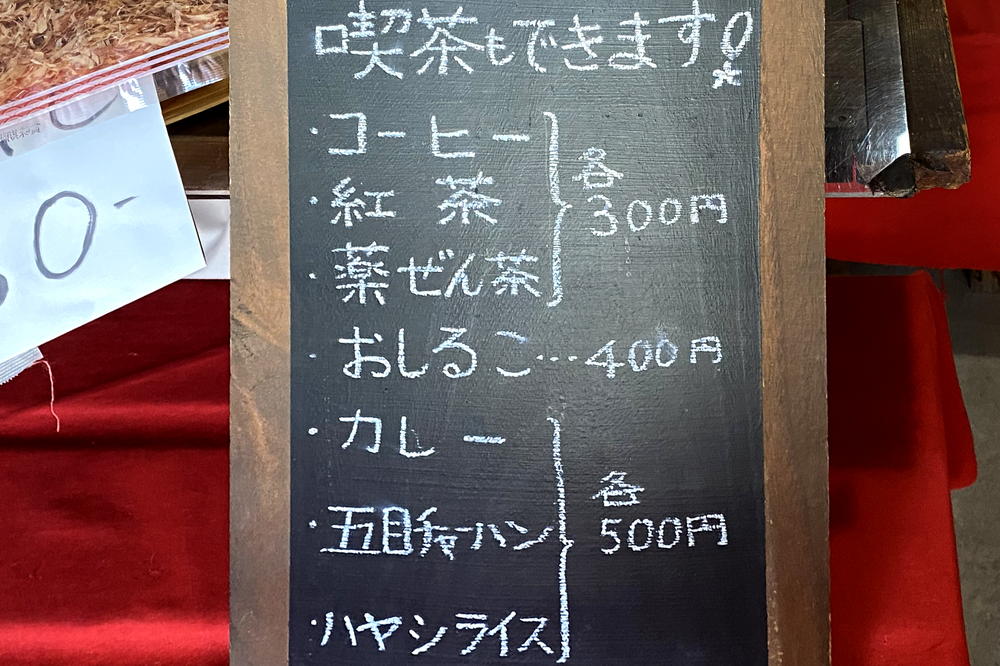 喫茶もできます!
・コーヒー
・紅茶
・薬ぜん茶
各
300円
・おしるこ…400円
・カレー
・五目チャーハン
・ハヤシライス
各
500円